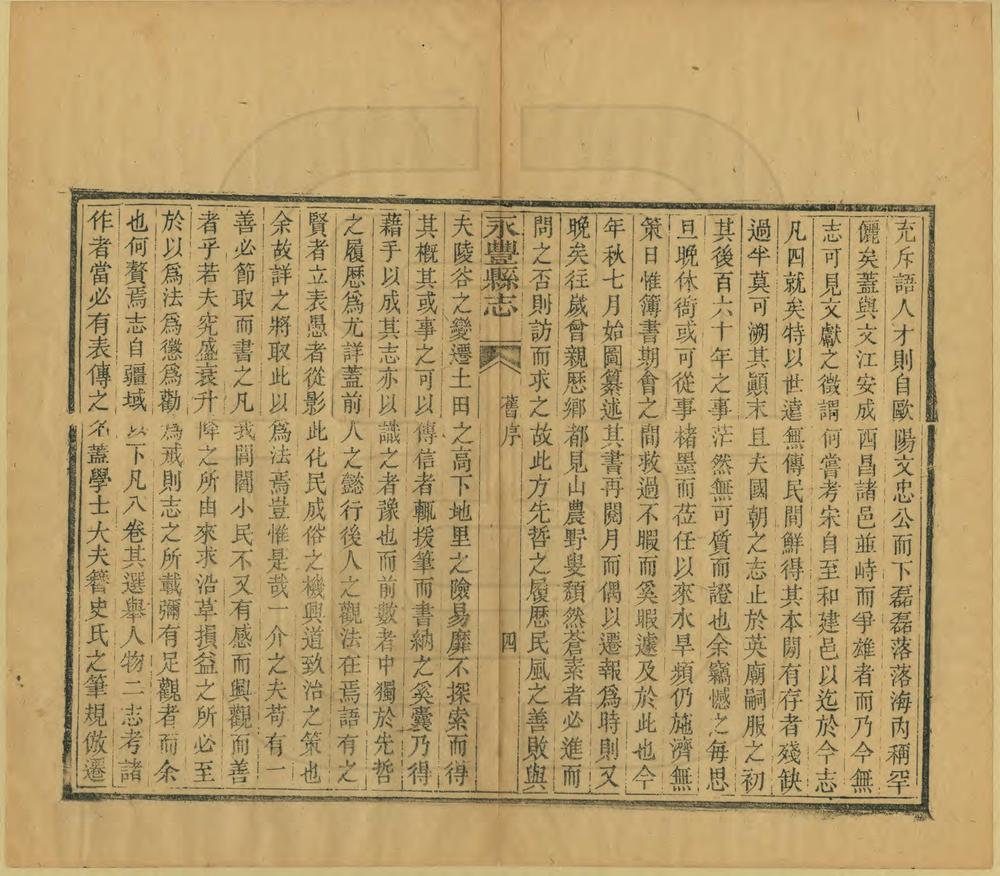 充斥語人才則自歐陽文忠公而下磊磊落落海內稱罕
儷矣蓋與文江安成西昌諸邑並峙而爭雄者而乃今無
志可見文獻之徵謂何嘗考宋自至和建邑以迄於今志
凡四就矣特以世遠無傳民間鮮得其本間有存者殘缺
過半莫可溯其顛末且夫國朝之志止於英廟嗣服之初
其後百六十年之事茫然無可質而證也余竊憾之每思
旦晚休衙或可從事楮墨而莅任以來水旱頻仍施濟無
策日惟簿書期會之間救過不暇而奚暇遽及於此也今
年秋七月始圖纂述其書再閱月而偶以遷報爲時則又
晚矣往歲曾親歷鄉都見山農野叟頹然蒼素者必進而
問之否則訪而求之故此方先哲之履歷民風之善敗與
永豐縣志
舊序
四
夫陵谷之變遷土田之高下地里之險易靡不探索而得
其槪其或事之可以傳信者輒援筆而書納之奚囊乃得
藉手以成其志亦以識之者豫也而前數者中獨於先哲
之履歷爲尤詳蓋前人之懿行後人之觀法在焉語有之
賢者立表愚者從影此化民成俗之機興道致治之策也
余故詳之將取此以爲法焉豈惟是哉一介之夫苟有一
善必節取而書之凡我閭閻小民不又有感而興觀而善
者乎若夫究盛衰升降之所由來求沿革損益之所必至
於以爲法爲懲爲勸爲戒則志之所載彌有足觀者而余
也何贅焉志自疆域以下凡八卷其選舉人物二志考諸
作者當必有表傳之名蓋學士大夫簪史氏之筆規倣遷